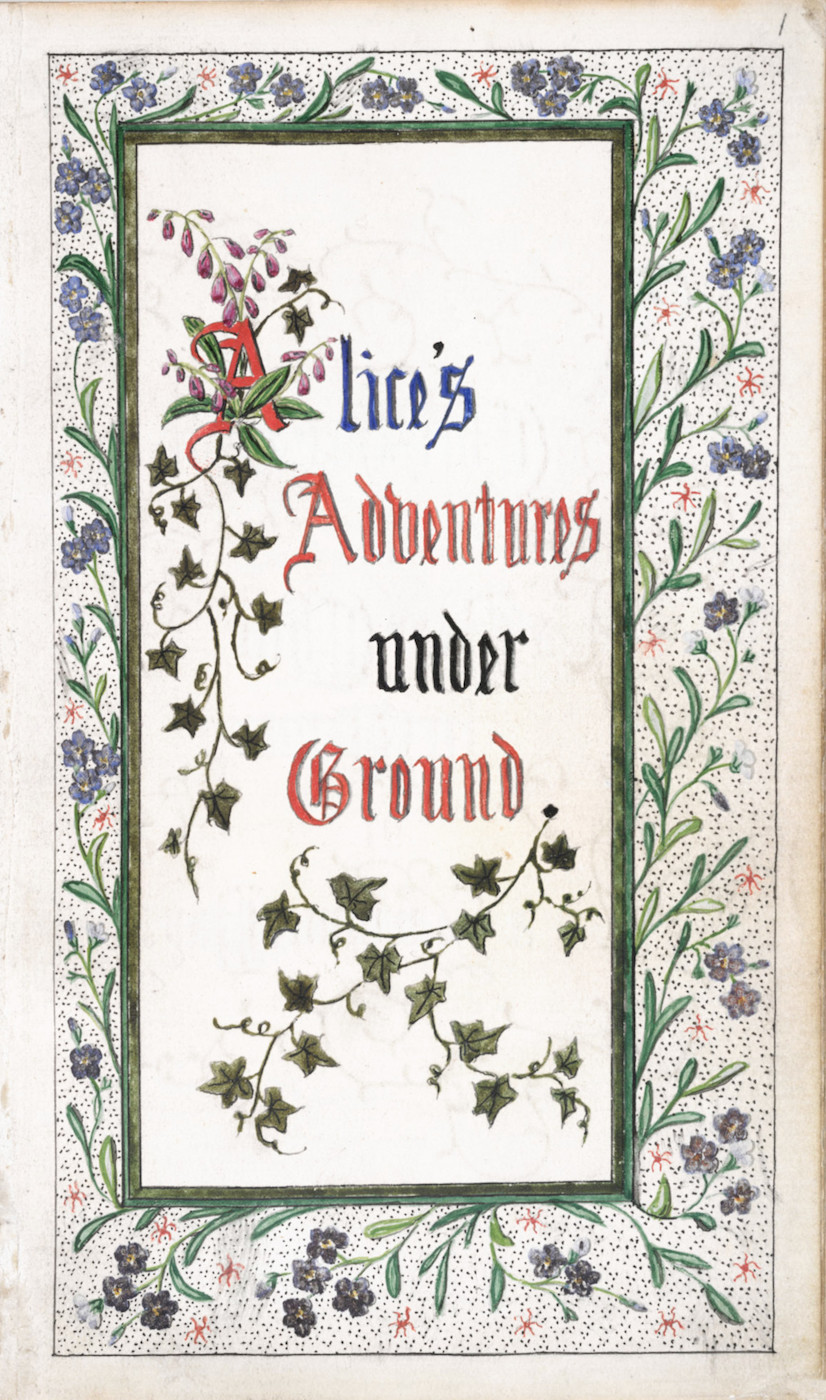 1
Alice's
Adventures
under
Ground.